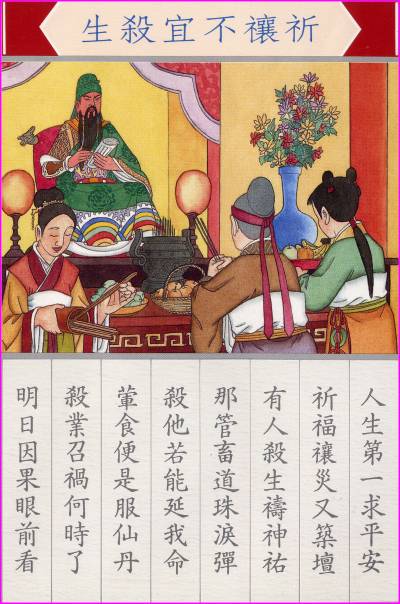 祈禳不宜殺生
人生第一求平安
祈福禳災又築壇
有人殺生禱神祐
那管畜道珠淚彈
殺他若能延我命
葷食便是服仙丹
殺業召禍何時了
明日因果眼前看